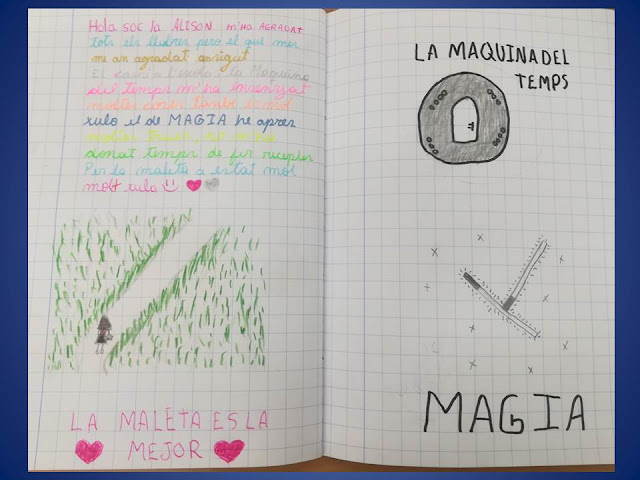 Hola sóc la ALISON m'ha AGRADAT
tots els llibres pero el que mes
me an agradat ansigut
El camí a l'escola i la Maquina
del temps m'ha insenyat
moltes coses també es mol
xulo el de MAGIA he apres
moltes
donat temps de fer
Per la maleta a estat mol
molt xula
LA MALETA ES LA
MEJOR
LA MAQUINA DEL
TEMPS
MAGIA